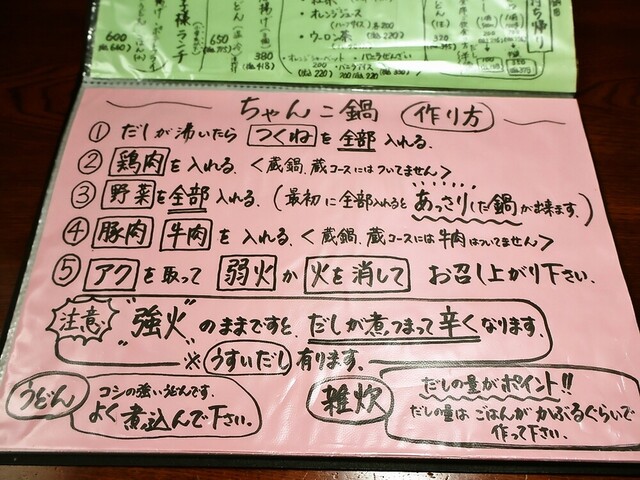 子様ランチ
600
(込660)
650
(込715)
380
(込418)
・オレンジジュース
・ウーロン茶
(込220)
(込220) 200 (込220)
320
ちゃんこ鍋 作り方
① だしが沸いたら つくね を 全部 入れる.
② 鶏肉 を 入れる. <蔵鍋、蔵コースにはついてません>
③ 野菜 を 全部 入れる. (最初に全部入れると あっさりした鍋が出来ます.)
④ 豚肉 牛肉 を 入れる. <蔵鍋、蔵コースには牛肉はついてません>
⑤ アク を 取って 弱火 か 火を消して お召し上がり下さい.
注意 “強火” のままですと、だしが煮つまって辛くなります.
※ うすいだし 有ります.
うどん コシの強いうどんです.
よく煮込んで下さい.
雑炊 だしの量がポイント!!
だしの量は ごはんが かぶるぐらいで
作って下さい.